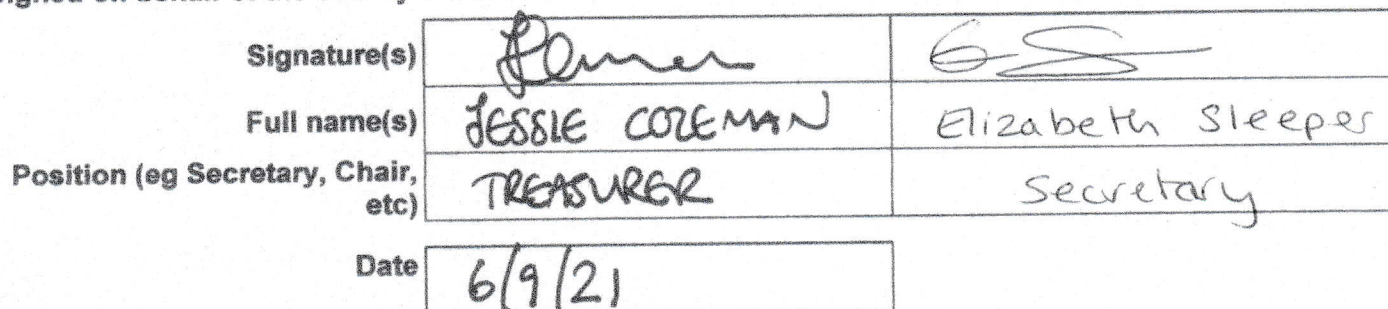 Signature(s)
Full name(s) JESSIE COLEMAN Elizabeth Sleeper
Position (eg Secretary, Chair,
etc) TREASURER Secretary
Date 6/9/21